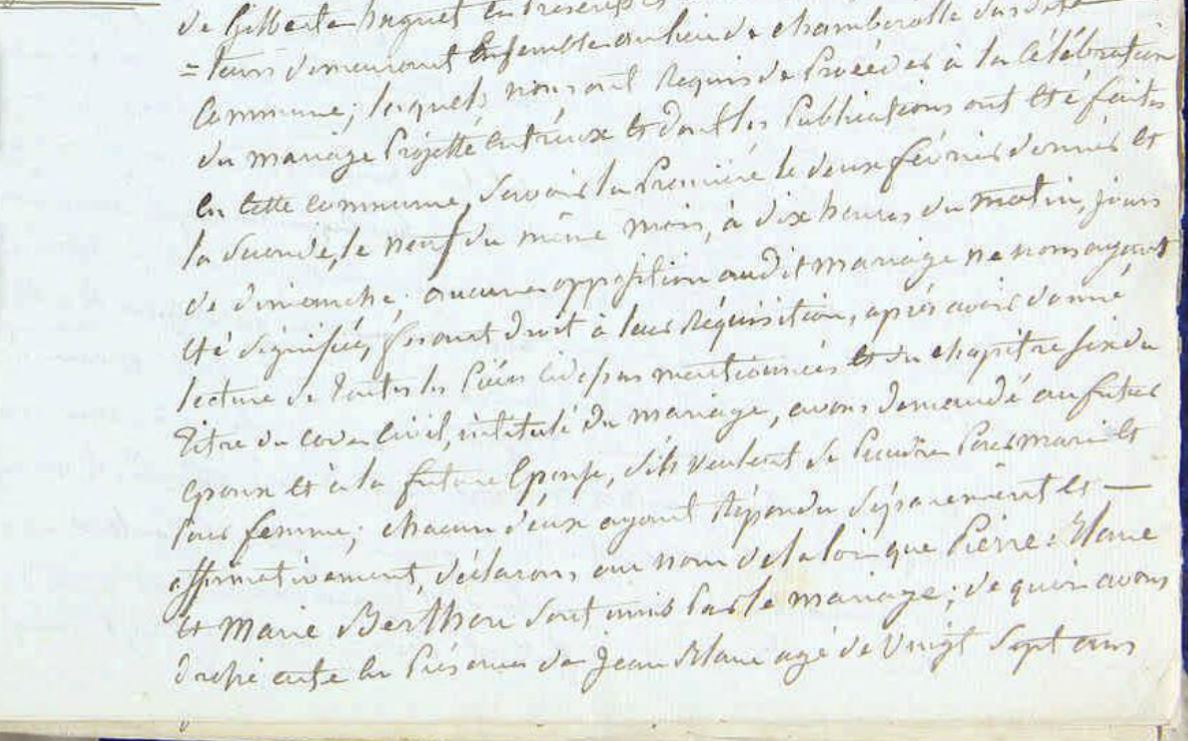 de Gilberte huguet
= leurs demeurant Ensemble au lieu de chamberolle dudit
Commune; lesquels nous ont Requis de Procéder à la Célébration
du mariage Projetté entr'eux et dont les Publications ont été faites
en cette commune, Savoir la Première le deux février dernier et
la Seconde, le neuf du même mois, à dix heures du matin, jours
de dimanche; aucune opposition audit mariage ne nous ayant
été Signifiée, faisant droit à leur Réquisition, après avoir donné
lecture de Toutes les Pièces cidessus mentionnées et du chapitre six du
Titre du code civil, intitulé du mariage, avons demandé au futur
epoux et à la future Epouse, s'ils veulent se Prendre Pour mari et
Pour femme; chacun d'eux ayant Répondu Séparément et —
affirmativement, déclarons au nom de la loi que Pierre
et Marie Berthon Sont unis Par le mariage; de quoi avons
dressé acte en Présence de Jean agé de Vingt Sept ans